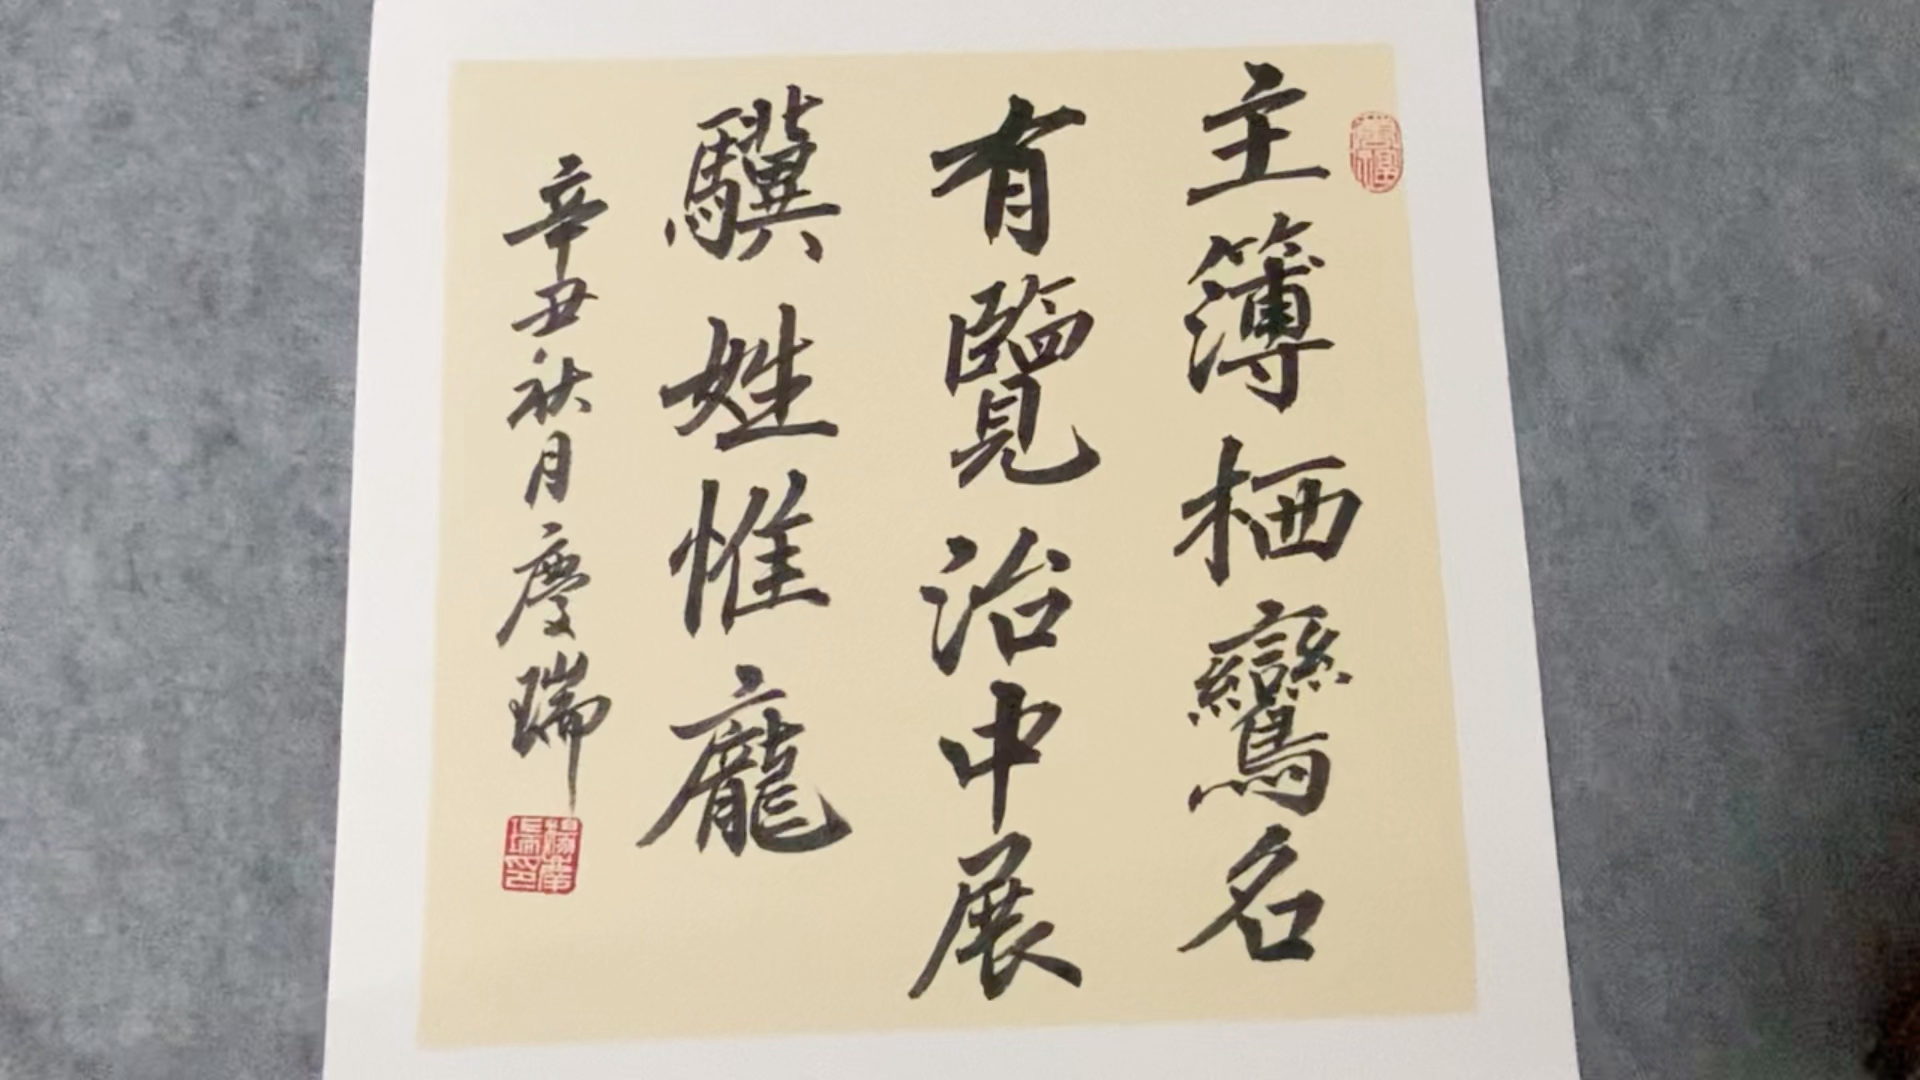 主簿栖鸞名
有覽治中展
驥姓惟龐
辛丑秋月慶瑞